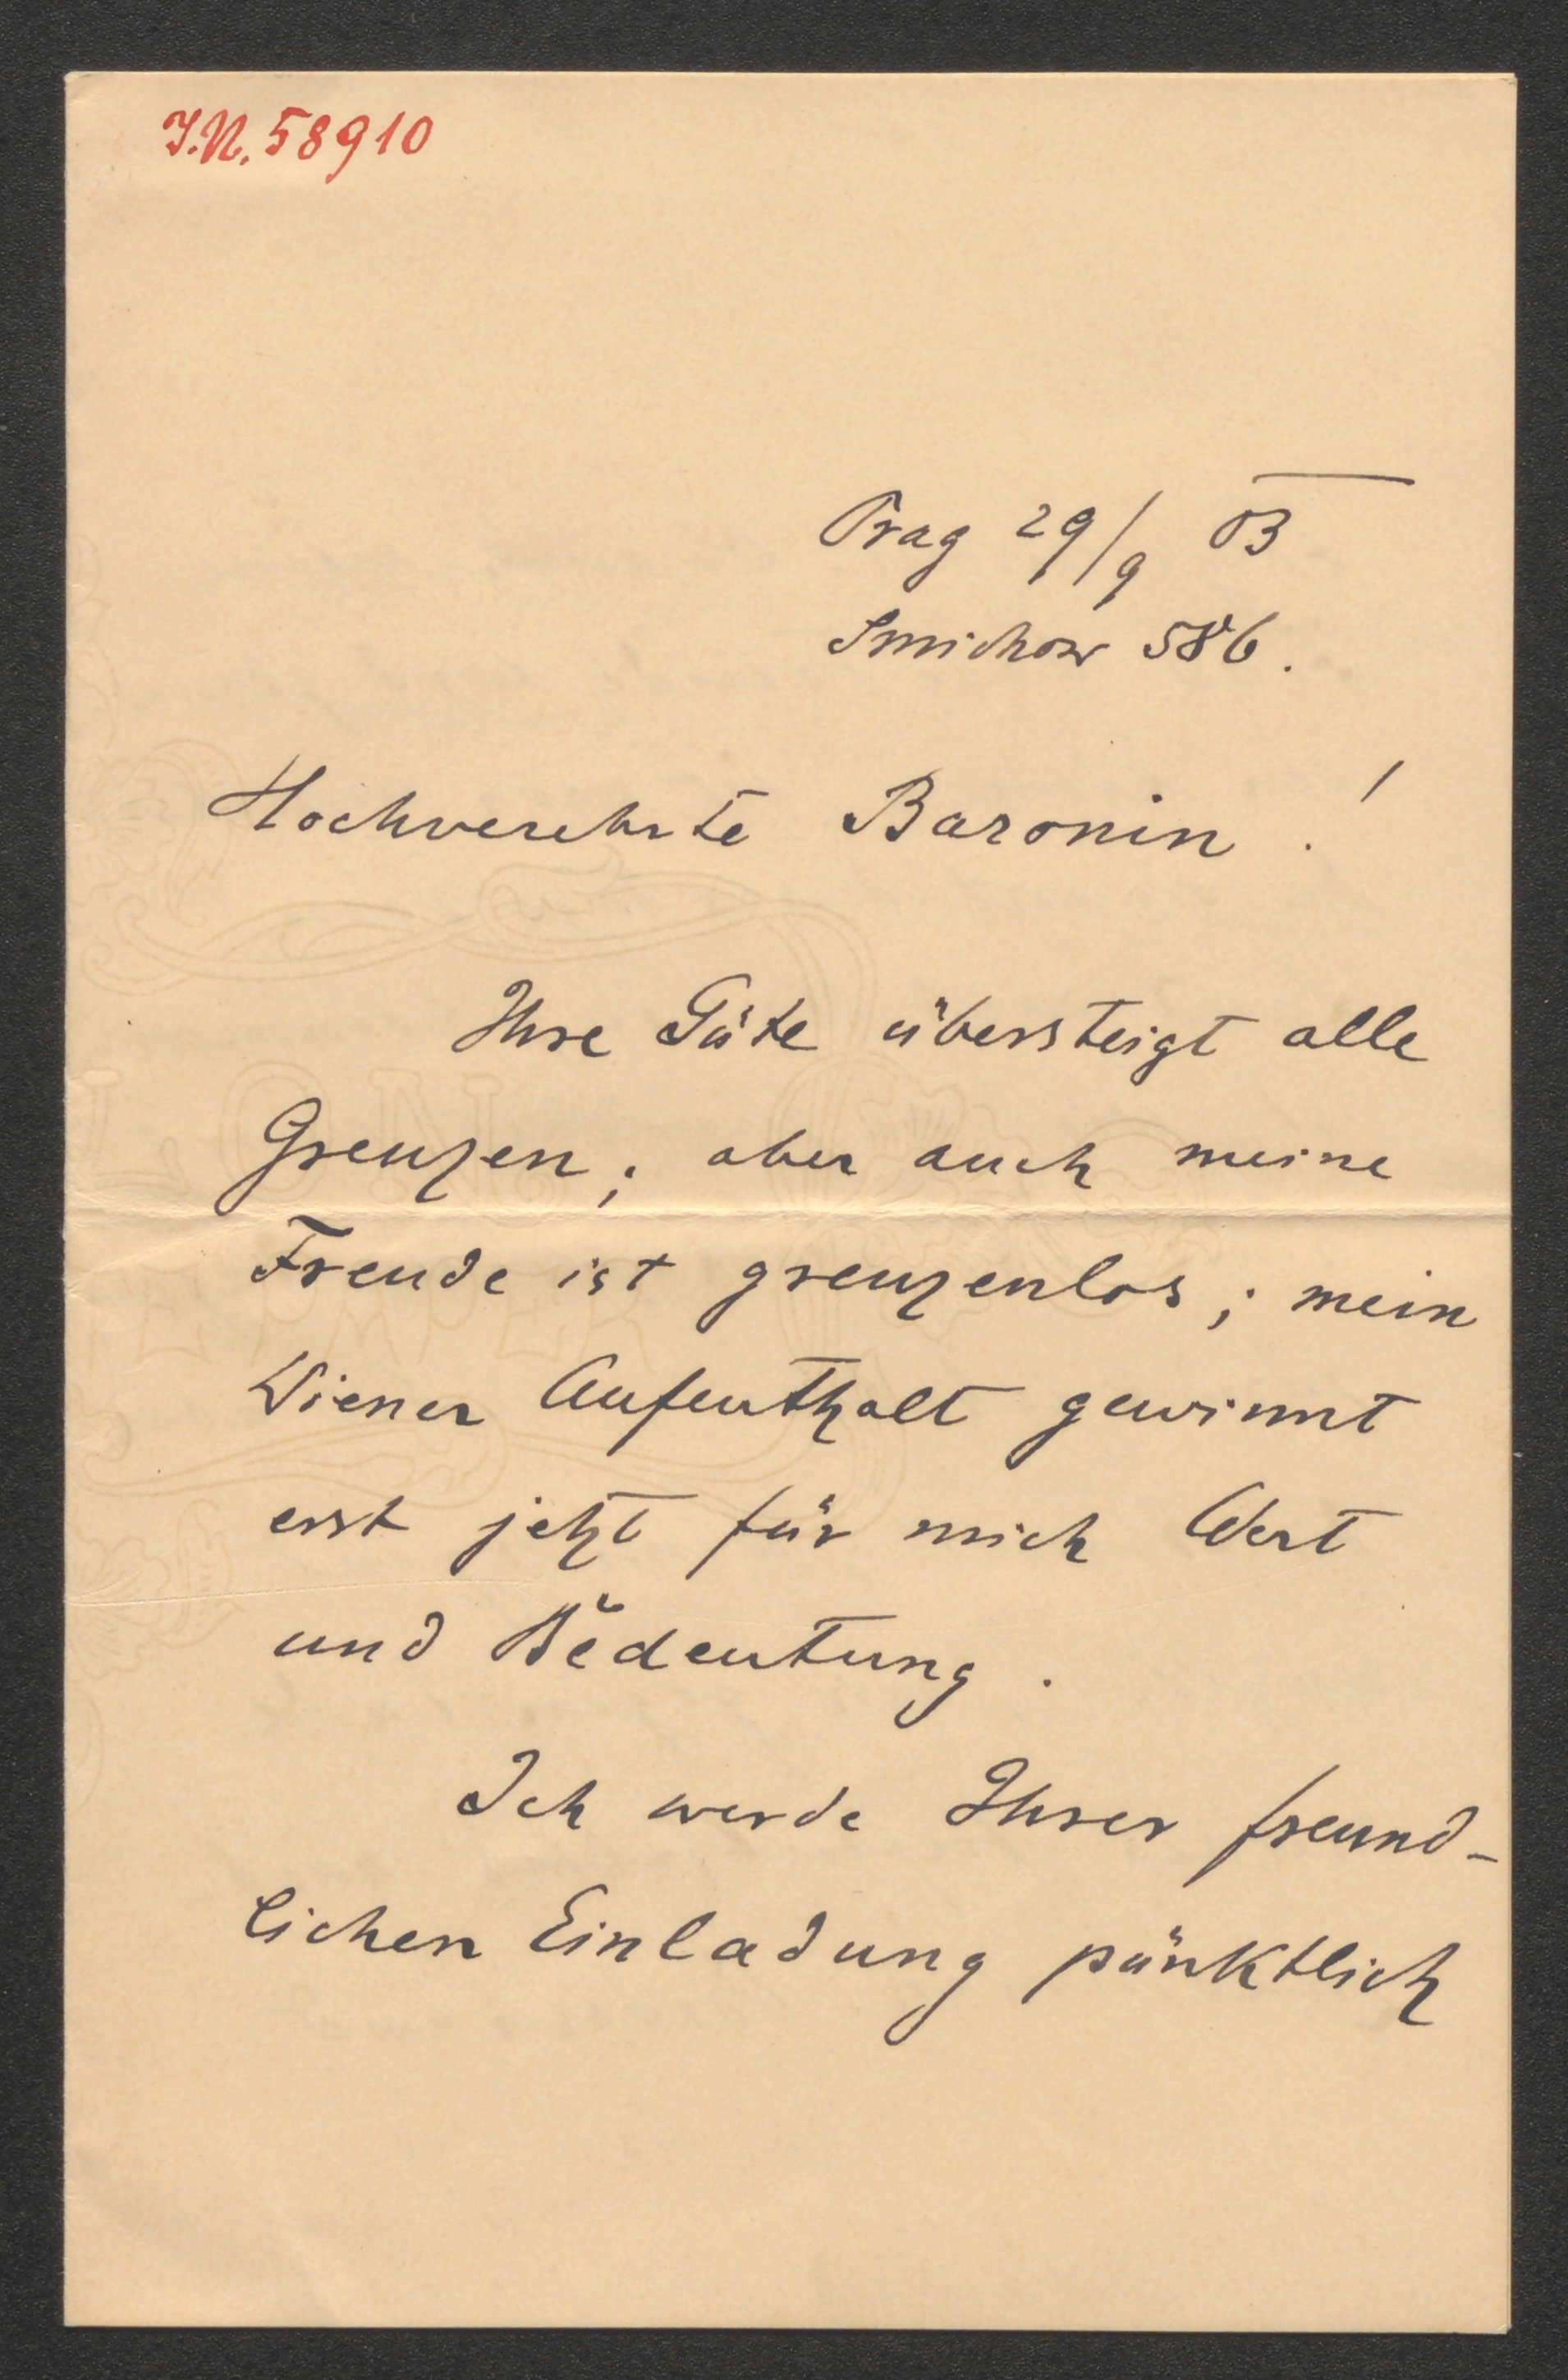 I.N. 58910
Prag 29/9 03
Smichow 586.
Hochverehrte Baronin!
Ihre Güte übersteigt alle
Grenzen; aber auch meine
Freude ist grenzenlos; mein
Wiener Aufenthalt gewinnt
erst jetzt für mich Wert
und Bedeutung.
Ich werde Ihrer freund-
lichen Einladung pünktlich